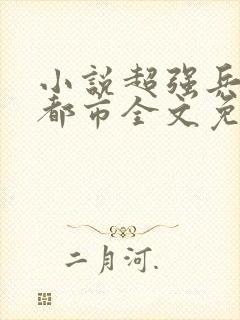 小説超强兵
都市全文免
二月河.